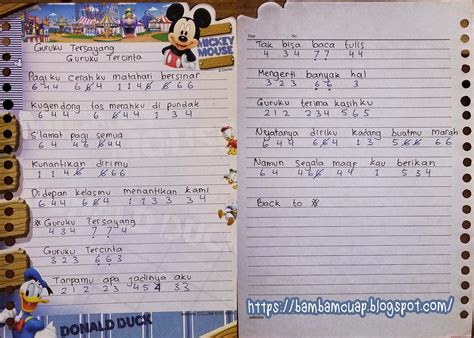 Guruku Tersayang
Guruku Tercinta
MICKEY
MOUSE
© Disney
Pagiku cerahku matahari bersinar
6 44 6 6 4 1 1 4 6 6 6
Kugendong tas merahku di pundak
6 44 6 6 4 1 1 4 6 6
S'lamat pagi semua
6 4 4 6 4 6 6
Kunantikan dirimu
1 1 4 6 6 6 6
Di depan kelasmu menantikan kami
6 44 6 4 4 1 1 3 3 4
※ Guruku Tersayang
4 3 4 7 7 4
Guruku Tercinta
3 2 3 6 6 3
Tanpamu apa jadinya aku
2 1 2 2 3 4 5 4 3 3
DONALD DUCK
Tak bisa baca tulis
4 3 4 7 7 4 4
Mengerti banyak hal
3 2 3 6 6 3
Guruku terima kasihku
2 1 2 2 3 4 5 6 5
Nyatanya diriku kadang buatmu marah
6 4 4 6 6 4 1 1 4 6 6 6
Namun segala maaf kau berikan
6 4 6 6 4 4 1 5 3 4
Back to ※
https://bambamcuap.blogspot.com/